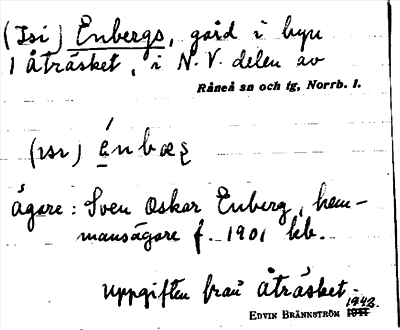 (Isi) Enbergs, gård i byn
1 Åträsket, i N.V. delen av
Råneå sn och tg, Norrb. l.
(ɪsɪ) énbæʂ
ägare: Sven Oskar Enberg, hem-
mansägare f. 1901 hb.
Uppgiften från Åträsket.
1942.
EDVIN BRÄNNSTRÖM 1941